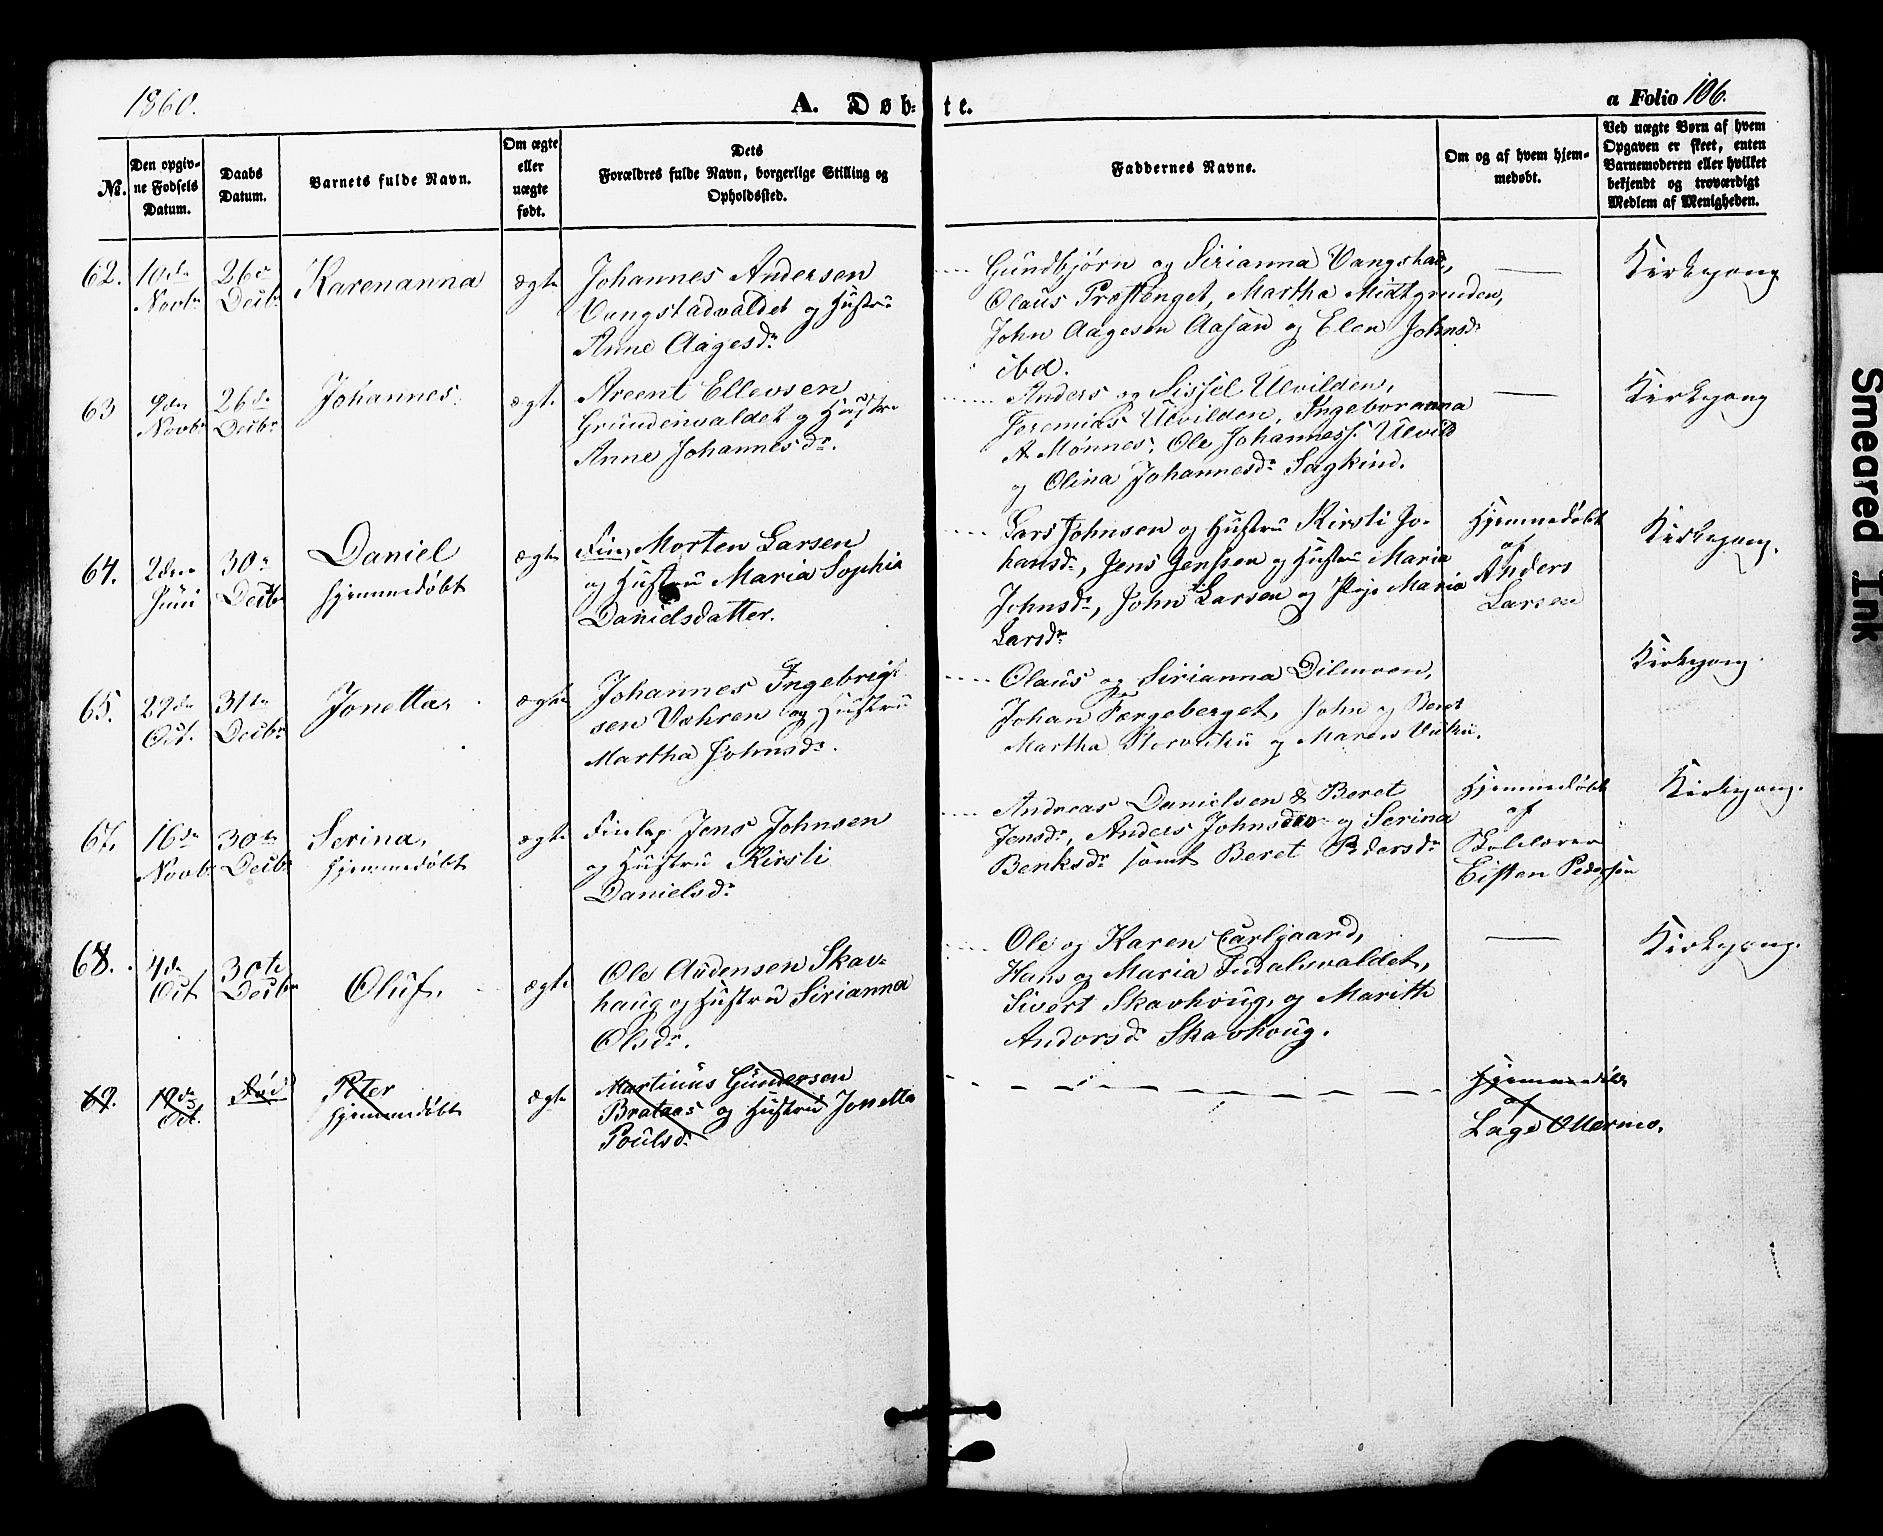 1860.
A. Døb-
te.
a Folio 106.
No.
Den opgiv-
ne Fødsels
Datum.
Daabs
Datum.
Barnets fulde Navn.
Om ægte
eller
uægte
født.
Dets
Forældres fulde Navn, borgerlige Stilling og
Opholdssted.
Faddernes Navne.
Om og af hvem hjem-
medøbt.
Ved uægte Børn af hvem
Opgaven er skeet, enten
Barnemoderen eller hvilket
bekjendt og troværdigt
Medlem af Menigheden.
62.
10de
Novbr
26de
Decbr
Karenanna
ægte
Johannes Andersen
Vangstadvaldet og Hustru
Anne Aagesdr
Gundbjørn og Sirianna Vangstad,
Olaus Præstenget, Martha Midtgrunden,
John Aagesen Aasan og Elen Johnsdr
ibd.
Kirkegang
63
9de
Novbr
26de
Decbr
Johannes
ægt.
Areent Ellevsen
Grundenvaldet og Hustru
Anne Johannesdr.
Anders og Sissel Ulvilden,
Jeremias Ulvilden, Ingeboranna
A Mønnes, Ole Johanness. Ulvild
og Olina Johannesdr Sagkind.
Kirkegang
64.
2den
Juni
30te
Decbr
Daniel
hjemmedøbt
ægte
Fin, Morten Larsen
og Hustru Maria Sophia
Danielsdatter.
Lars Johnsen og Hustru Kirsti Jo-
hansdr, Jens Jenssen og Hustru Maria
Johnsdr, John Larsen og Pige Maria
Larsdr
Hjemmedøbt
af
Anders
Larsen
Kirkegang.
65.
29de
Oct.
31te
Decbr
Jonetta
ægte
Johannes Ingebrigt-
sen Væhren og Hustru
Martha Johnsdr.
Olaus og Sirianna Dilmoen,
Johan Færgeberget, John og Beret
Martha Storvuku og Maren Vuku.
Kirkegang.
67.
16de
Novbr
30te
Decbr
Serina,
hjemmedøbt
ægte
Finlap Jens Johnsen
og Hustru Kirsti
Danielsdr
Andreas Danielsen & Beret
Jensdr, Anders Johnsen og Serina
Benksdr samt Beret Pedersdr
Hjemmedøbt
af
Skolelærer
Eisten Pedersen
Kirkegang.
68.
4de
Oct
30te
Decbr
Oluf.
ægte
Ole Andersen Skav-
haug og Hustru Sirianna
Olsdr.
Ole og Karen Carlgaard,
Hans og Maria Indalsvaldet,
Sivert Skavhoug, og Marith
Andorsdr Skavhoug.
Kirkegang.
69.
19de
Oct.
Død
Peter
hjemmedøbt
ægte
Martinus Gundersen
Brataas og Hustru Jonetta
Poulsdr
Hjemmedøbt
af
Lage Ottermo.
Smeared Ink